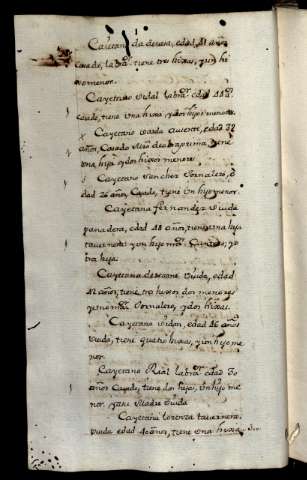 Cayetano da devesa, edad 41 años
Casado, labr.r tiene tres hixas, y un hi
xo menor.
Cayetano vidal labr.r edad 44 a.s
casado, tiene una hixa y dos hijos menores
Cayetano Varda ausente, edad 32
años, Casado tiene
una hija y dos hixos menores
Cayetano Sanchez Jornalero, e
dad 26 años, Casado, tiene Un hijo menor.
Cayetana fernandez Viuda
panadera, edad 48 años, tiene una hija
tavernera y un hijo m.or y o
tra hija.
Cayetana de seoane Viuda, edad
42 años, tiene tres hixos dos menores
y uno m.or Jornalero, y dos hixas.
Cayetana vidal, edad 46 años
viuda, tiene quatro hixas, y un hijo me
nor.
Cayetano Rial labr.r edad 30
años Casado, tiene dos hijas, Un hijo me
nor, y una Madre Viuda
Cayetana lorenza tavernera
viuda edad 40 años, tiene una hixa